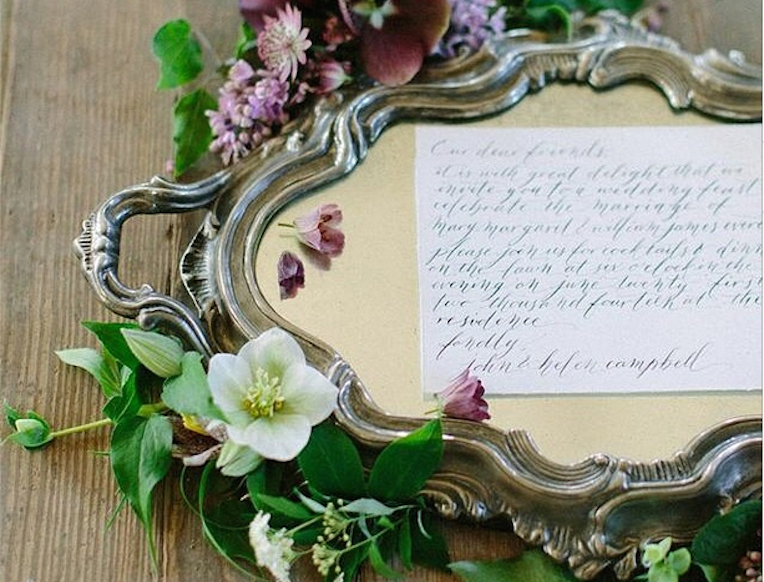 Our dear friends,
it is with great delight that we
invite you to a wedding feast
celebrate the marriage of
Mary Margaret & William James
please join us for cocktails &
on the lawn at six o'clock in the
evening on june twenty first
two thousand fourteen at the
residence
fondly,
John & helen campbell